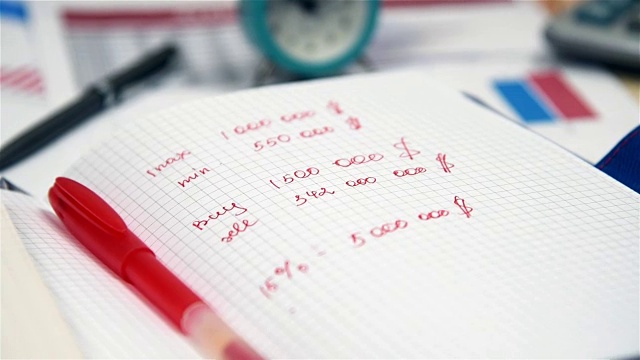 max 1 000 000 $
min. 550 000 $
Buy 1500 000 $
sell 342 000 000 $
15% - 5 000 000 $